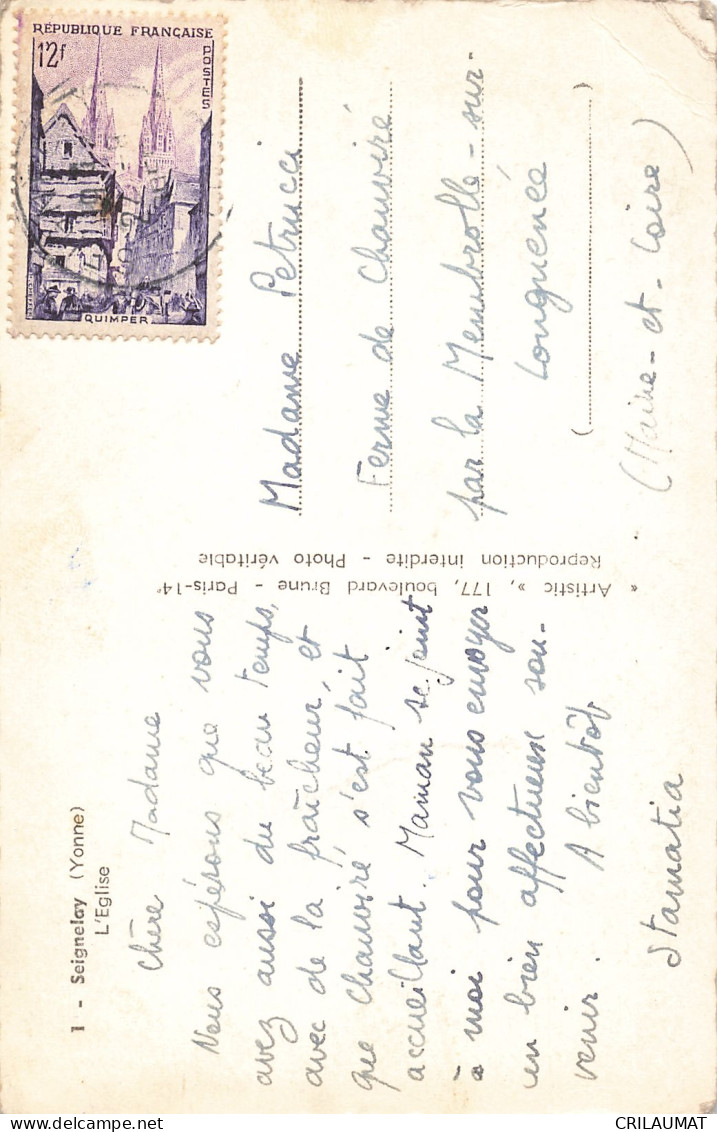 1 - Seignelay (Yonne)
L'Eglise
Chère Madame
Nous espérons que vous
avez aussi du beau temps,
avec de la fraîcheur, et
que Chauviré s'est fait
accueillant. Maman se joint
à moi pour vous envoyer
un bien affectueux sou-
venir. A bientôt
Stamatia
« Artistic », 177, boulevard Brune - Paris-14e
Reproduction interdite - Photo véritable
RÉPUBLIQUE FRANÇAISE
12f
POSTES
QUIMPER
Madame Petrucci
Ferme de Chauviré
par la Membrolle-sur-
Longuenée
(Maine-et-Loire)
CRILAUMAT